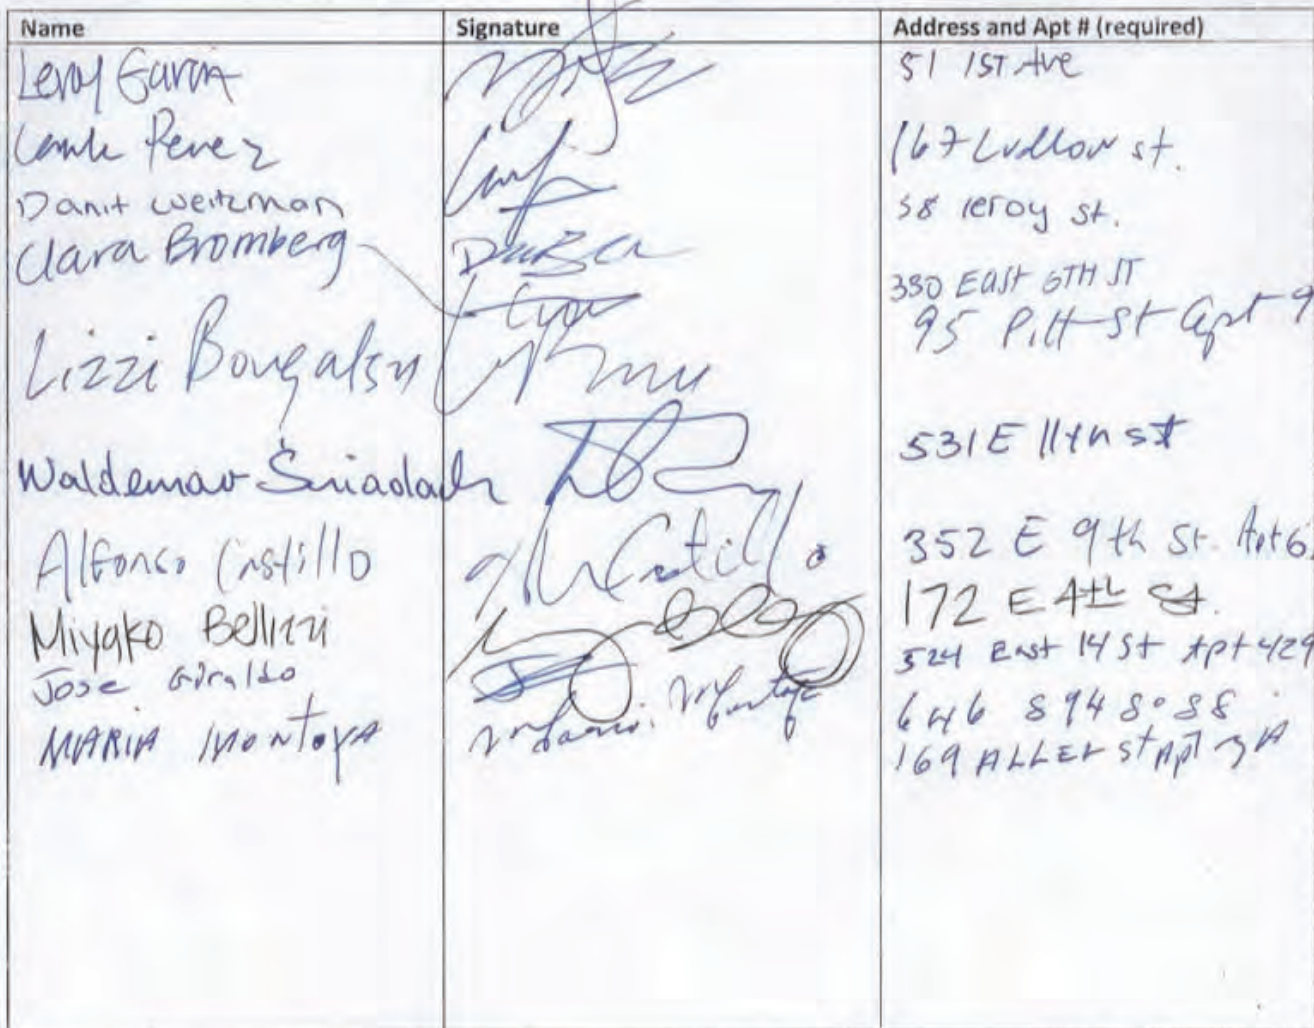 Name Signature Address and Apt # (required)
Leroy Garcia 51 1ST Ave
Perez 167 Ludlow st.
Danit Weitzman 58 leroy st.
Clara Bromberg
350 EAST 6TH ST
Lizzi Bougatsu 95 Pitt St apt 9
Waldemar Śniadach 531 E 11th st
Alfonso Castillo Castillo 352 E 9th St. Apt 6
Miyako Bellizzi 172 E 4th St.
Jose Giraldo 524 East 14 St Apt 429
646 894 8088
MARIA MONTOYA Maria. Montoya 169 ALLEN St Apt 3 A